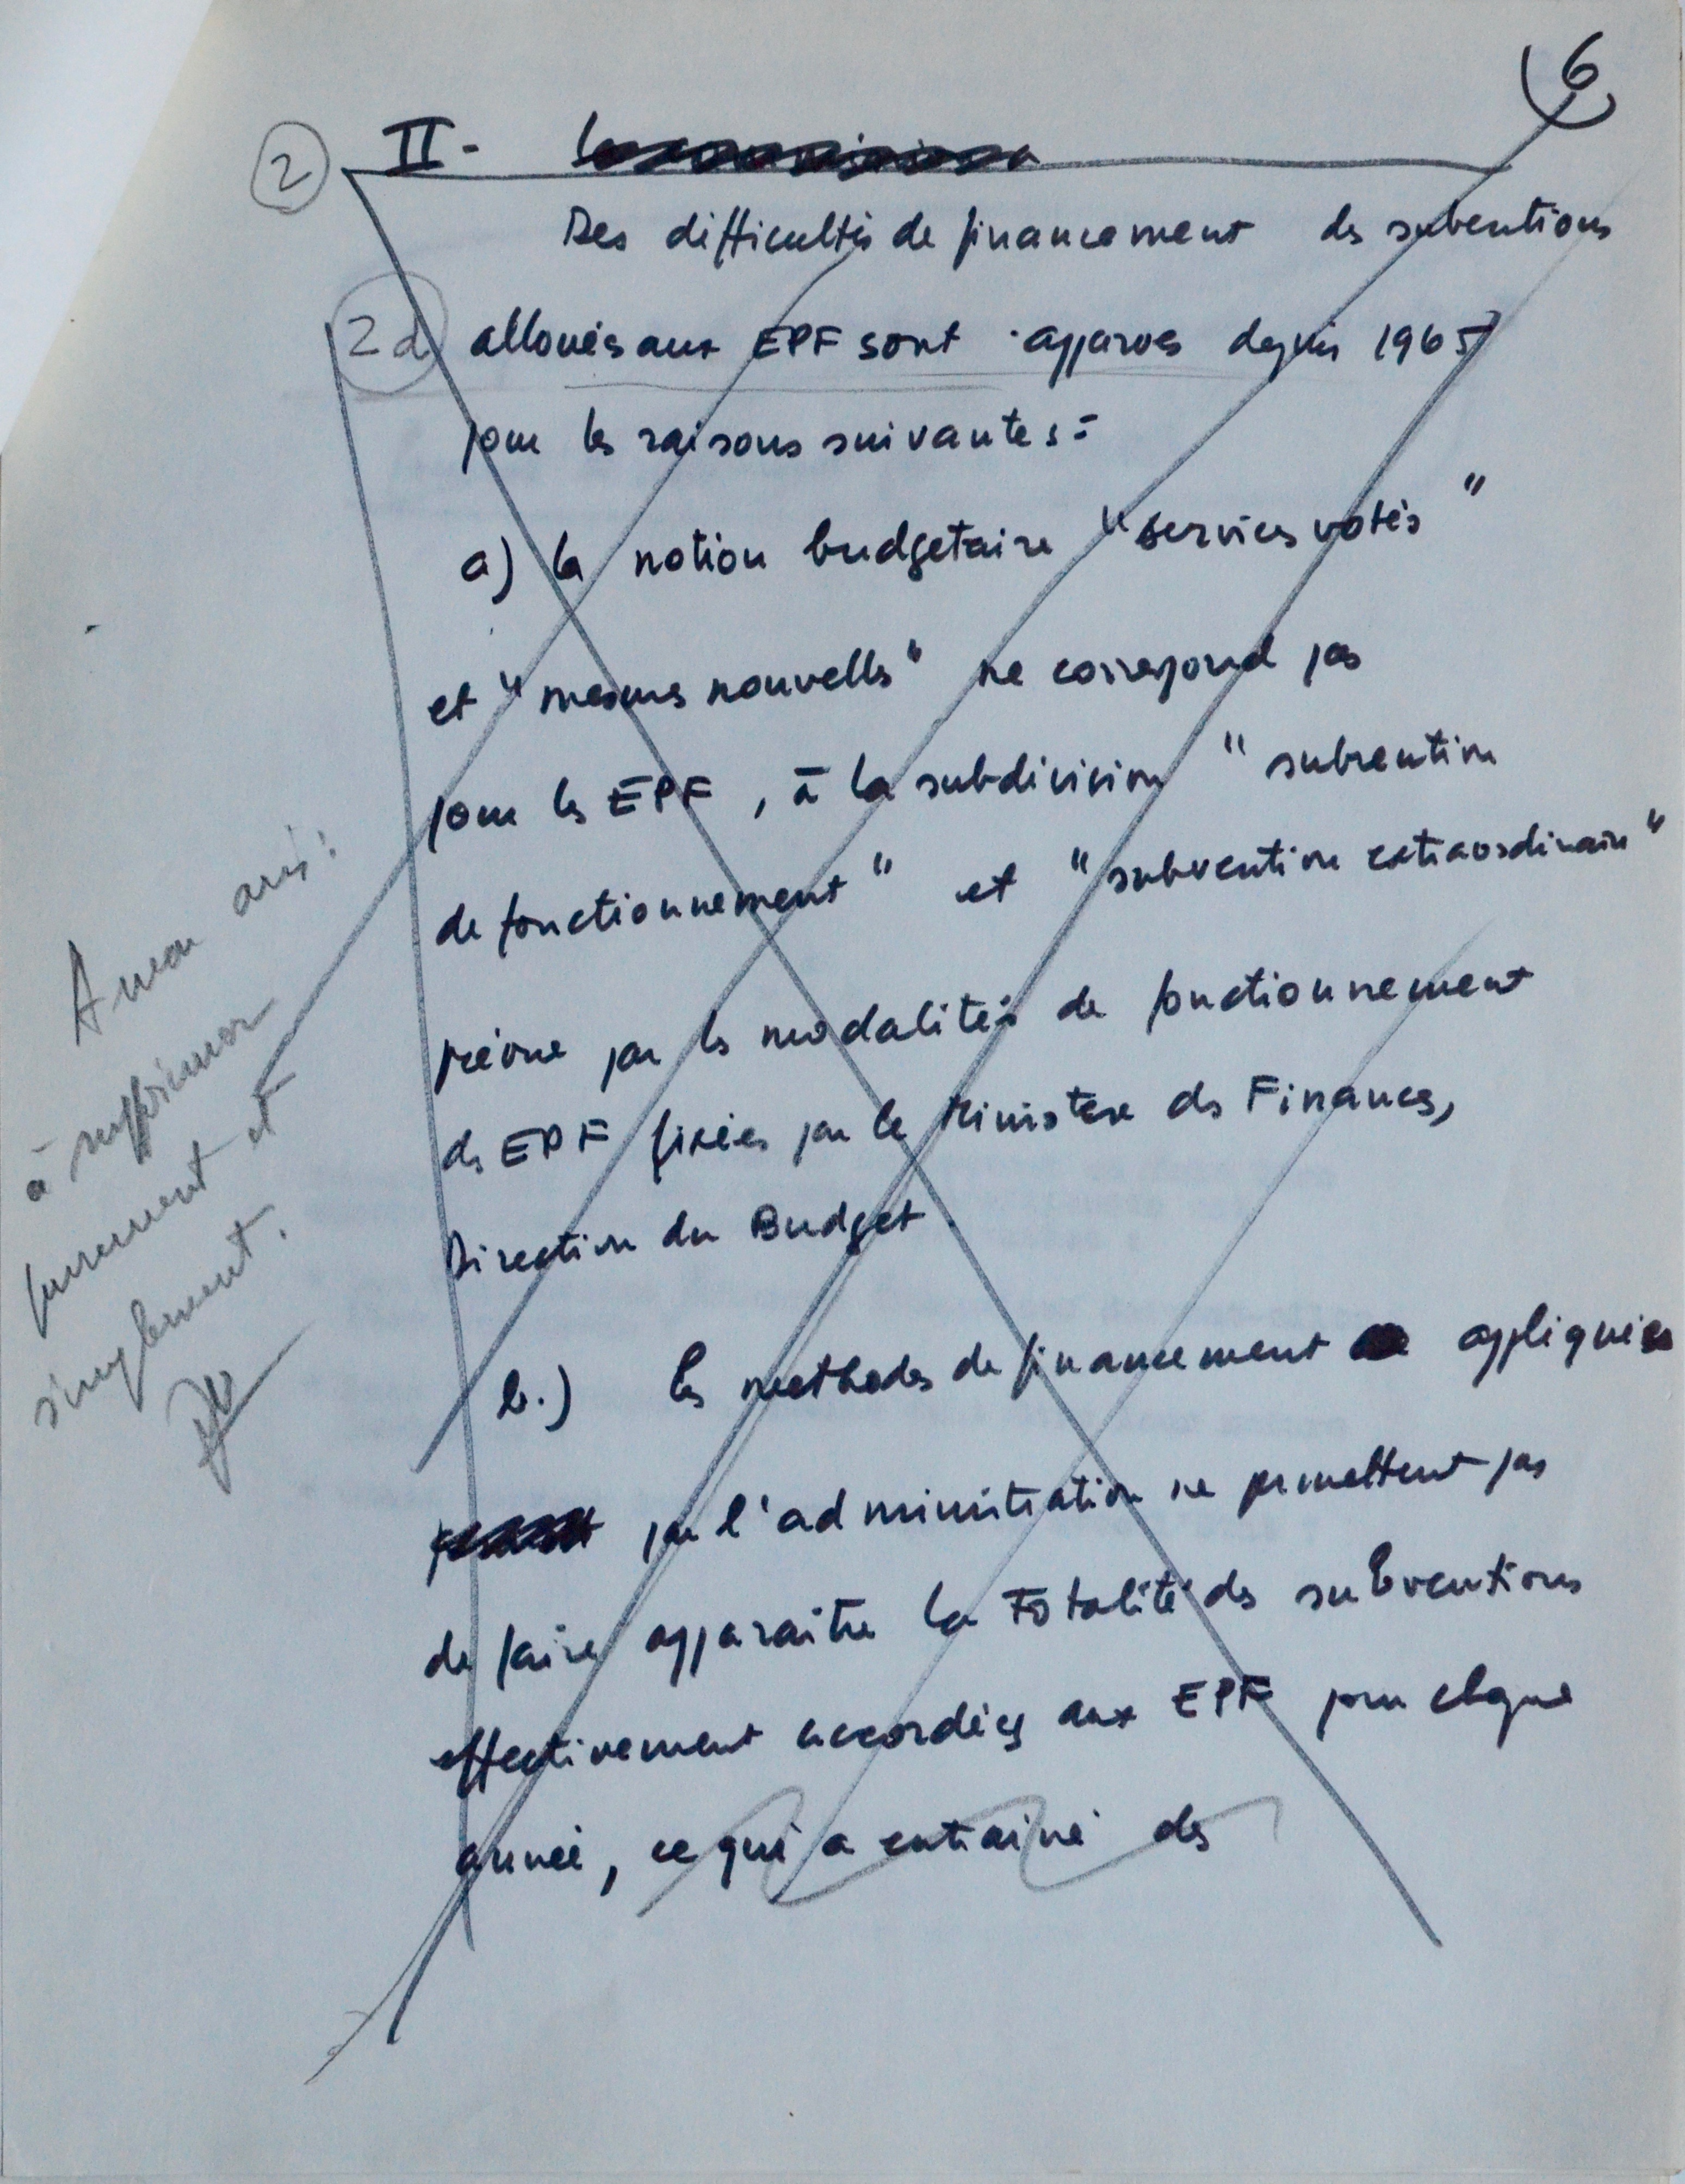 6
2
II-
Des difficultés de financement des subventions
2d
allouées aux EPF sont apparues depuis 1965
pour les raisons suivantes :
a) la notion budgetaire "services votés"
et "mesures nouvelles" ne correspond pas
pour les EPF, à la subdivision "subvention
de fonctionnement" et "subvention extraordinaire"
prévue par les modalités de fonctionnement
des EPF fixées par le Ministère des Finances,
Direction du Budget.
b.) les methodes de financement appliquées
par l'administration ne permettent pas
de faire apparaitre la Totalité des subventions
effectivement accordées aux EPF pour chaque
année, ce qui a entrainé des
A mon avis :
à supprimer
purement et
simplement.